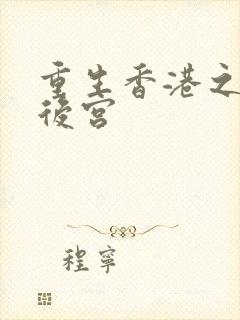 重生香港之
後宮
程寧